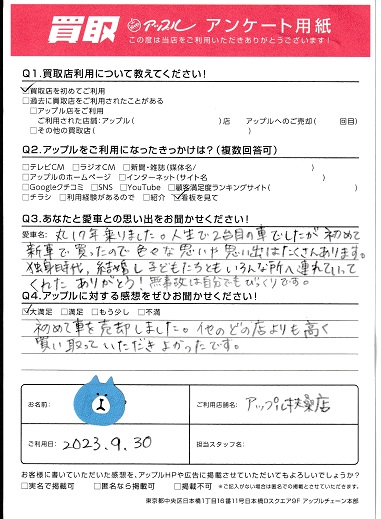 買取 アップル アンケート用紙
この度は当店をご利用いただきありがとうございます!
Q1.買取店利用について教えてください!
☑買取店を初めてご利用
□過去に買取店をご利用されたことがある
□アップル店をご利用
ご利用された店舗:アップル( )店 アップルへのご売却( 回目)
□その他の買取店( )
Q2.アップルをご利用になったきっかけは?(複数回答可)
□テレビCM □ラジオCM □新聞・雑誌(媒体名/ )
□アップルのホームページ □インターネット(サイト名 )
□Googleクチコミ □SNS □YouTube □顧客満足度ランキングサイト( )
□チラシ □利用経験があるので □紹介 ☑看板を見て
Q3.あなたと愛車との思い出をお聞かせください!
愛車名: 丸17年乗りました。人生で2台目の車でしたが初めて
新車で買ったので色々な思いや思い出はたくさんあります。
独身時代、結婚し子どもたちともいろんな所へ連れていって
くれた ありがとう! 無事故は自分でもびっくりです。
Q4.アップルに対する感想をぜひお聞かせください!
☑大満足 □満足 □もう少し □不満
初めて車を売却しました。他のどの店よりも高く
買い取っていただきよかったです。
お名前: ご利用店舗名: アップル扶桑店
ご利用日: 2023.9.30 担当スタッフ名:
お客様に書いていただいた感想を、アップルHPや広告に掲載させていただいてもよろしいでしょうか?
□実名で掲載可 □匿名なら掲載可 □掲載不可 ※ご記入がない場合は匿名での掲載とさせていただきます。
東京都中央区日本橋1丁目16番11号日本橋Dスクエア9F アップルチェーン本部